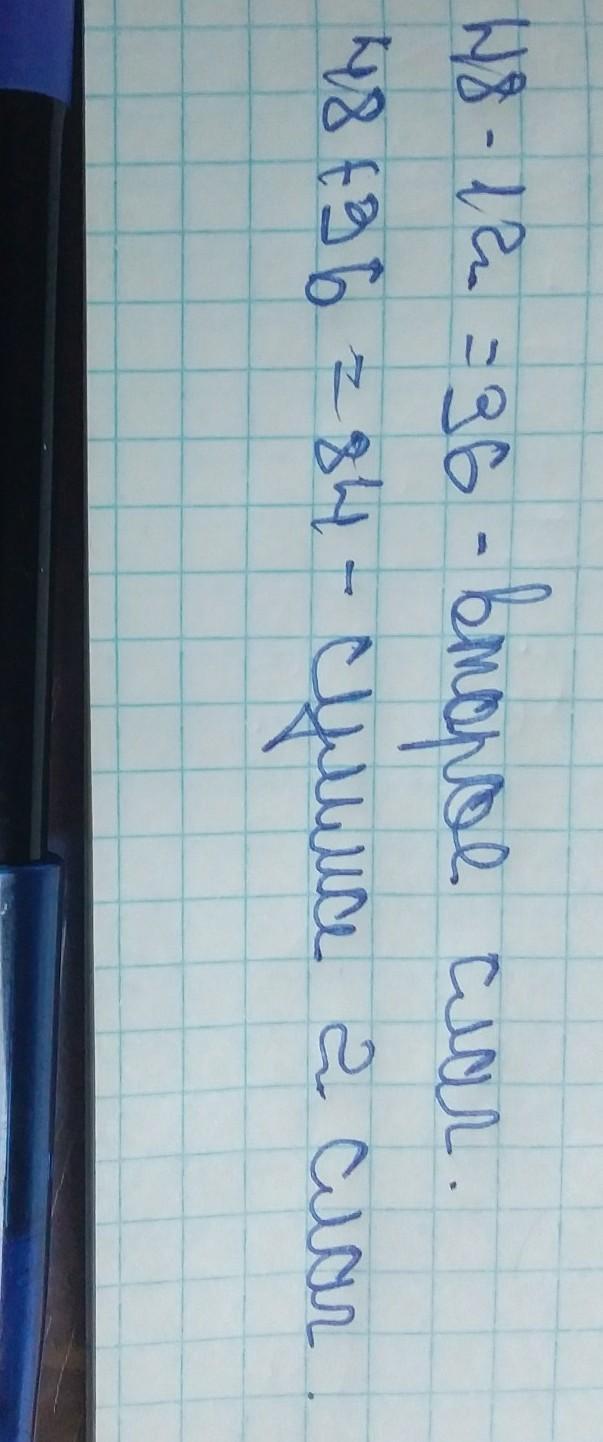 48 - 12 = 36 - второе слаг.
48 + 36 = 84 - сумма 2 слаг.